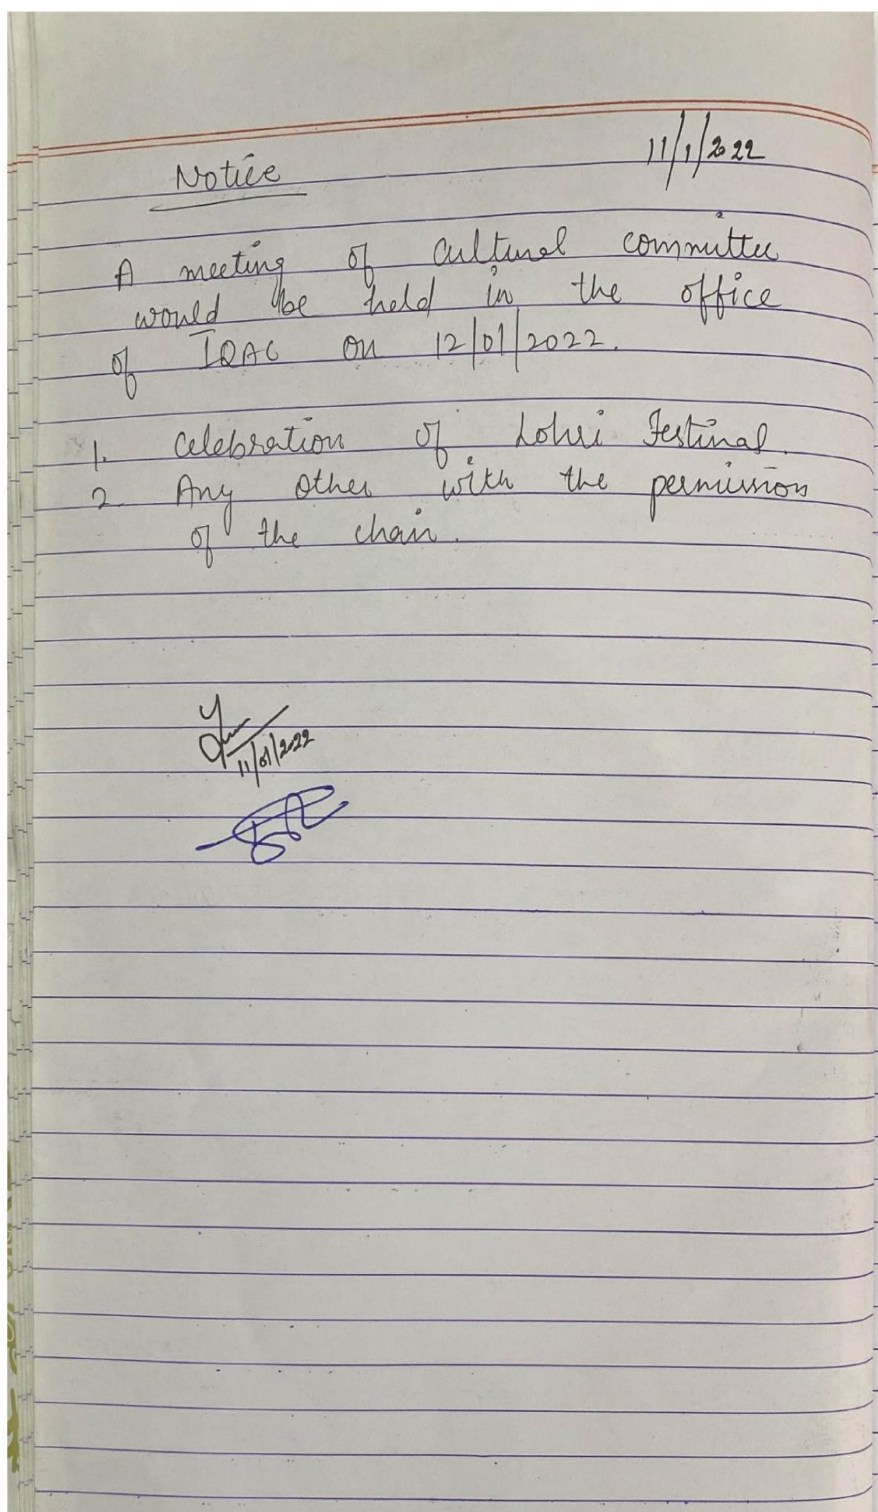 Notice 11/1/2022
A meeting of Cultural committee
would be held in the office
of IQAC on 12/01/2022.
1. Celebration of Lohri Festival.
2. Any other with the permission
of the chair.
11/01/2022